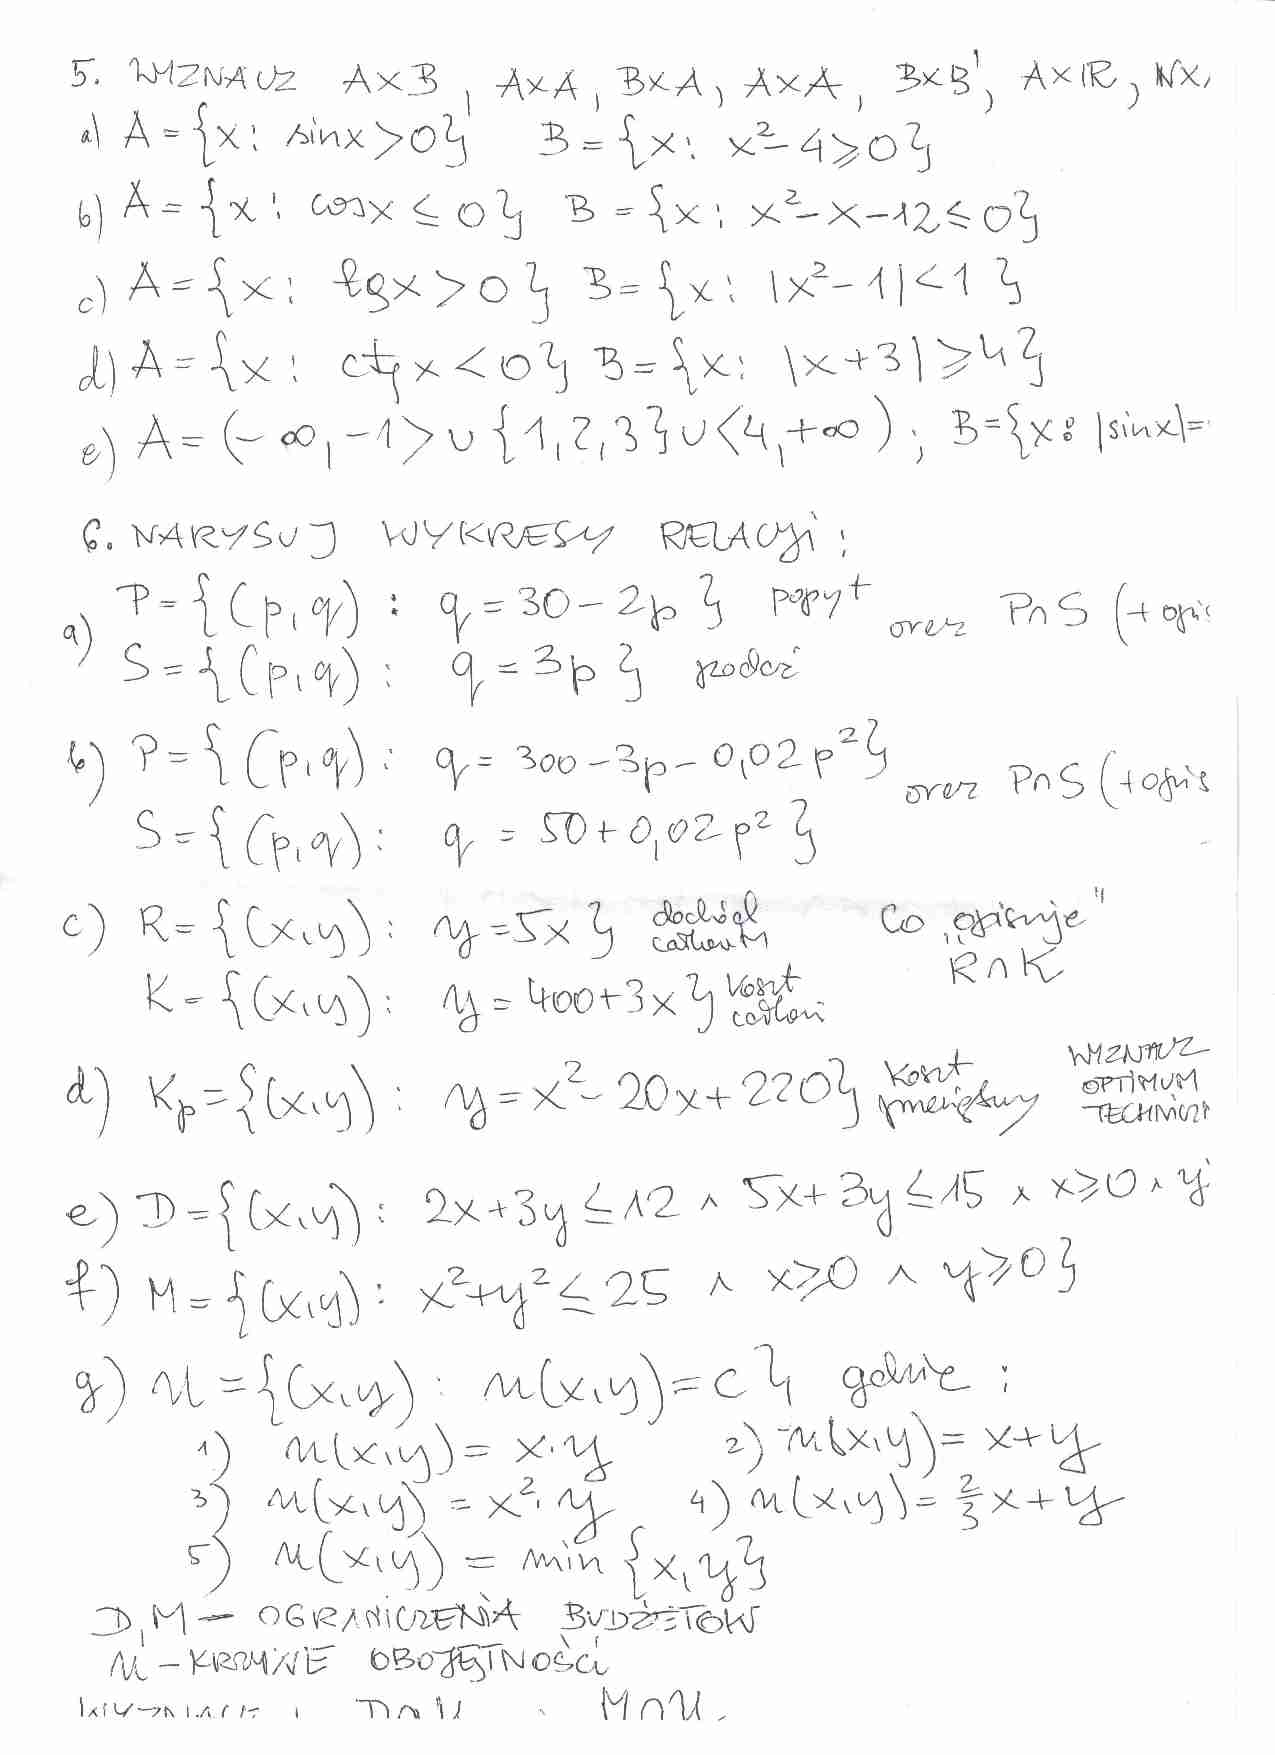 5. WYZNACZ A×B, A×A, B×A, A×A, B×B', A×ℝ, ℕ×,
a) A = {x: sinx>0} B = {x: x²-4⩾0}
b) A = {x: cosx ≤ 0} B = {x: x²-x-12≤0}
c) A = {x: tgx>0} B = {x: |x²-1|<1}
d) A = {x: ctgx<0} B = {x: |x+3|⩾4}
e) A = (-∞,-1> ∪ {1,2,3} ∪ <4,+∞); B={x: |sinx|=
6. NARYSUJ WYKRESY RELACJI:
a) P = {(p,q): q = 30-2p} popyt oraz P∩S (+ opis
S = {(p,q): q = 3p} podaż
b) P = {(p,q): q = 300-3p-0,02p²} oraz P∩S (+ opis
S = {(p,q): q = 50+0,02p²}
c) R = {(x,y): y=5x} dochód całkowity Co „opisuje" R∩K
K = {(x,y): y = 400+3x} koszt całkowi
d) Kp = {(x,y): y = x²-20x+220} koszt przeciętny WYZNACZ OPTIMUM TECHNICZN
e) D = {(x,y): 2x+3y ≤ 12 ∧ 5x+3y ≤ 15 ∧ x⩾0 ∧ y
f) M = {(x,y): x²+y² ≤ 25 ∧ x⩾0 ∧ y⩾0}
g) U = {(x,y): u(x,y)=c} gdzie:
1) u(x,y) = x·y 2) u(x,y) = x+y
3) u(x,y) = x²·y 4) u(x,y) = 2/3x+y
5) u(x,y) = min {x,y}
D, M - OGRANICZENIA BUDŻETÓW
U - KRZYWE OBOJĘTNOŚCI
D∩U M∩U.